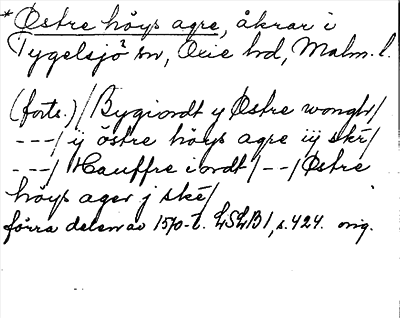 * Østre höys agre, åkrar i
Tygelsjö sn, Oxie hd, Malm. l.
(forts.) / Bygiordt y Østre wongh /
---/ ij östre höys agre iij skr /
---/ Hauffre iordt / -- / Østre
höys ager j skē /
förra delen av 1570-t. LSLB 1, s. 424. orig.